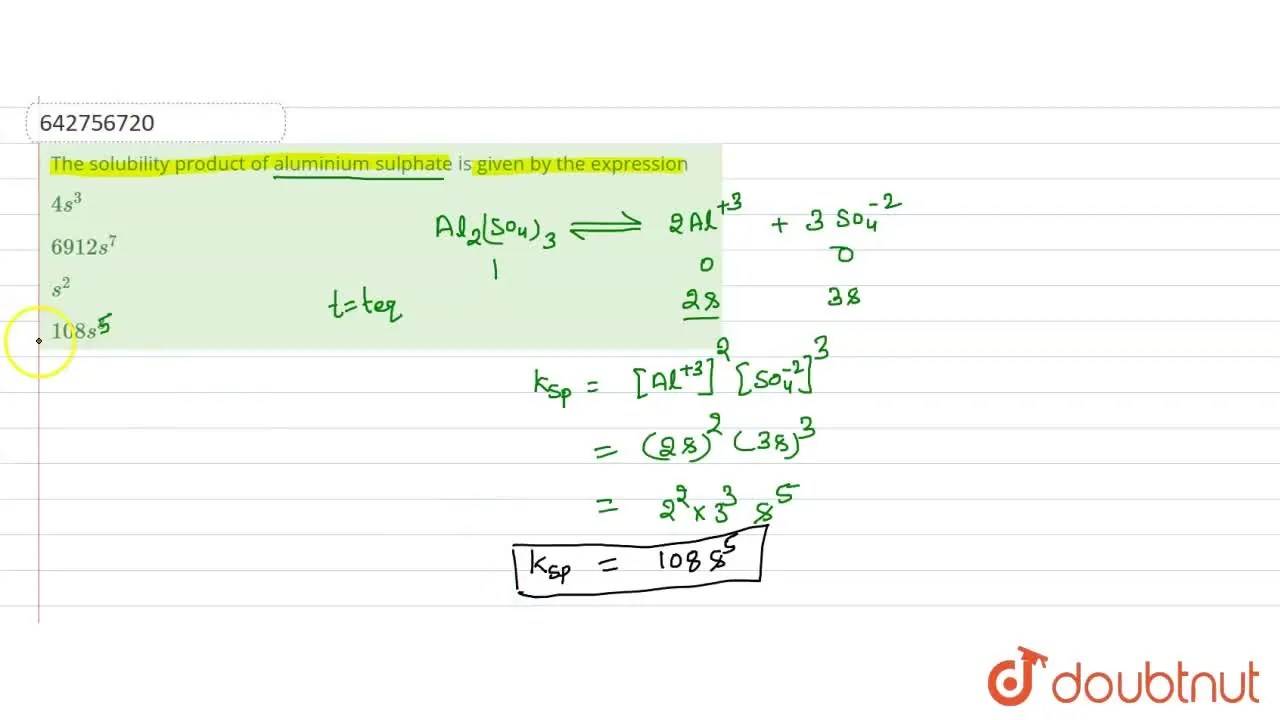 642756720
The solubility product of aluminium sulphate is given by the expression
4s³
6912s⁷
s²
108s⁵
Al₂(SO₄)₃ ⇌ 2Al⁺³ + 3SO₄⁻²
1 0 0
t=teq 2s 3s
Ksp = [Al⁺³]² [SO₄⁻²]³
= (2s)² (3s)³
= 2² × 3³ s⁵
Ksp = 108 s⁵
doubtnut